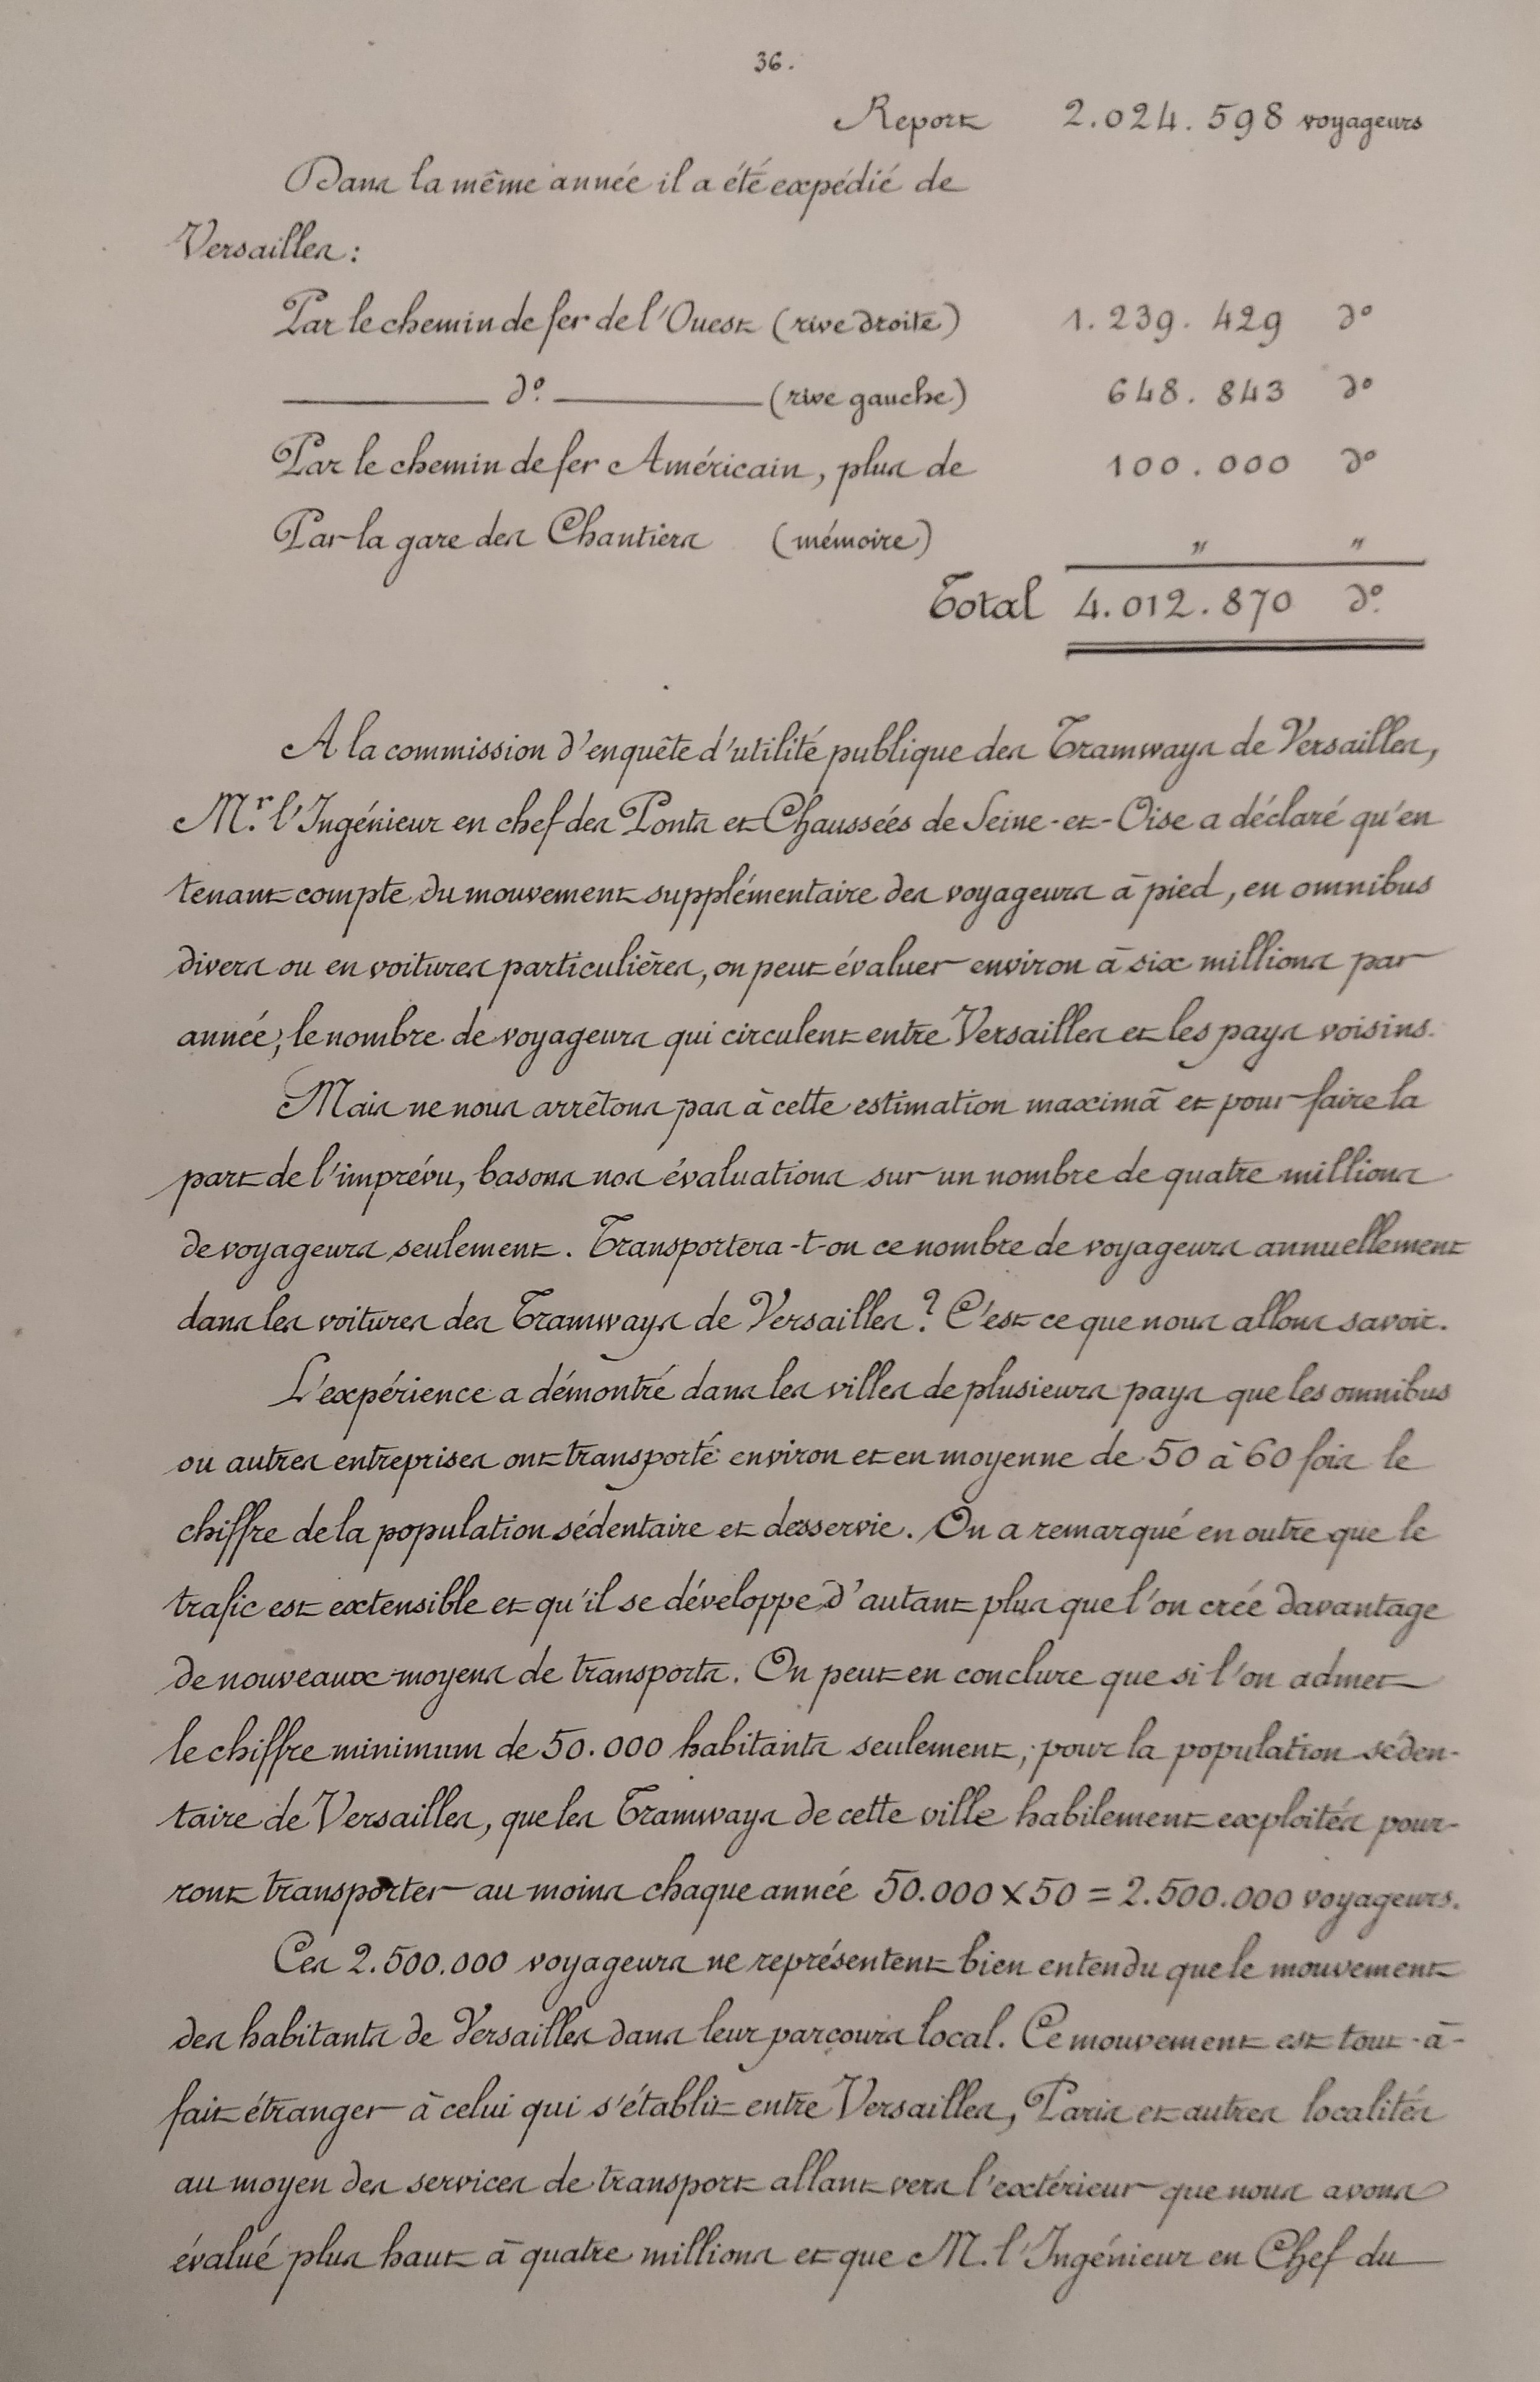 36.
Report 2.024.598 voyageurs
Dans la même année il a été expédié de
Versailles :
Par le chemin de fer de l'Ouest (rive droite) 1.239.429 do
do. (rive gauche) 648.843 do
Par le chemin de fer Américain, plus de 100.000 do
Par la gare des Chantiers (mémoire) " "
Total 4.012.870 do.
A la commission d'enquête d'utilité publique des Tramways de Versailles,
Mr. l'Ingénieur en chef des Ponts et Chaussées de Seine-et-Oise a déclaré qu'en
tenant compte du mouvement supplémentaire des voyageurs à pied, en omnibus
divers ou en voitures particulières, on peut évaluer environ à six millions par
année, le nombre de voyageurs qui circulent entre Versailles et les pays voisins.
Mais ne nous arrêtons pas à cette estimation maximâ et pour faire la
part de l'imprévu, basons nos évaluations sur un nombre de quatre millions
de voyageurs seulement. Transportera-t-on ce nombre de voyageurs annuellement
dans les voitures des Tramways de Versailles ? C'est ce que nous allons savoir.
L'expérience a démontré dans les villes de plusieurs pays que les omnibus
ou autres entreprises ont transporté environ et en moyenne de 50 à 60 fois le
chiffre de la population sédentaire et desservie. On a remarqué en outre que le
trafic est extensible et qu'il se développe d'autant plus que l'on créé davantage
de nouveaux moyens de transports. On peut en conclure que si l'on admet
le chiffre minimum de 50.000 habitants seulement, pour la population séden-
taire de Versailles, que les Tramways de cette ville habilement exploités pour-
ront transporter au moins chaque année 50.000 x 50 = 2.500.000 voyageurs.
Ces 2.500.000 voyageurs ne représentent bien entendu que le mouvement
des habitants de Versailles dans leur parcours local. Ce mouvement est tout-à-
fait étranger à celui qui s'établit entre Versailles, Paris et autres localités
au moyen des services de transport allant vers l'extérieur que nous avons
évalué plus haut à quatre millions et que M. l'Ingénieur en Chef du